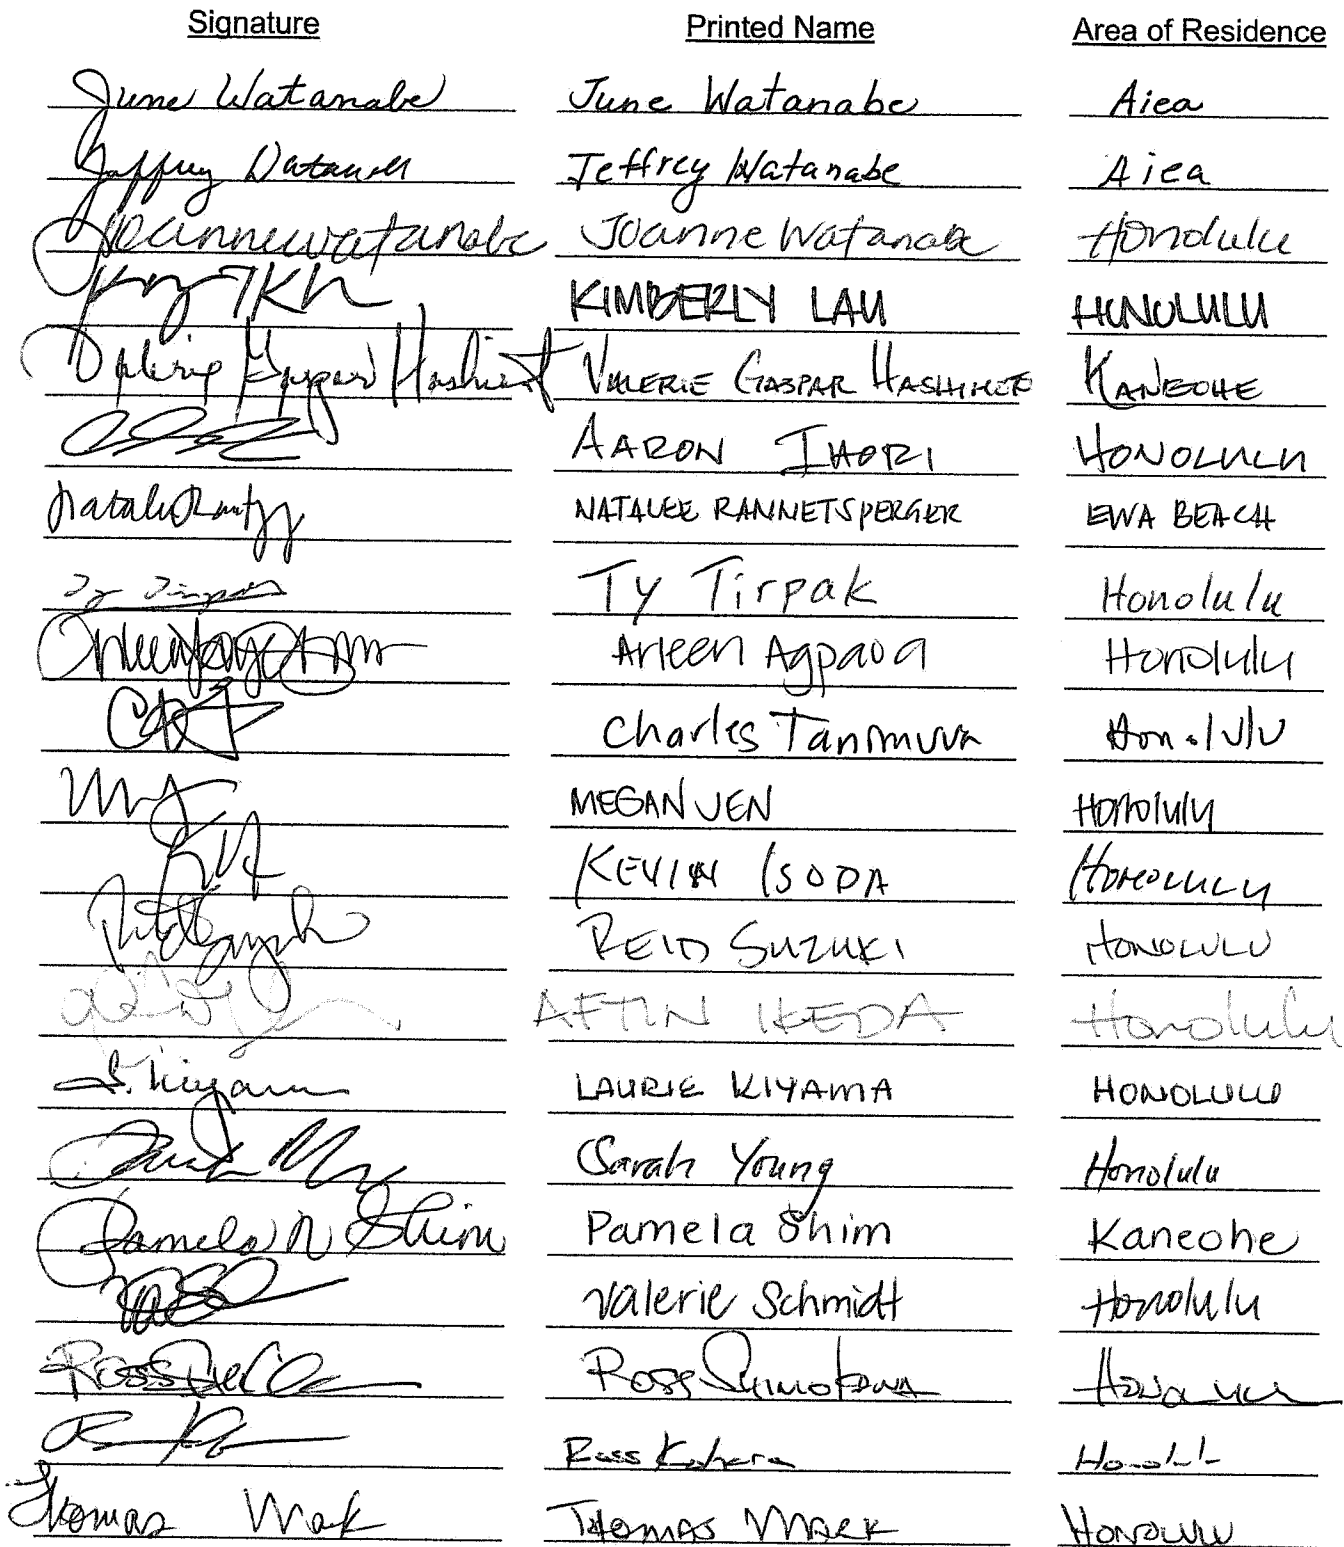 Signature Printed Name Area of Residence
June Watanabe June Watanabe Aiea
Jeffrey Watanabe Jeffrey Watanabe Aiea
Joanne Watanabe Joanne Watanabe Honolulu
KIMBERLY LAU HONOLULU
Valerie Gaspar Hashimoto VALERIE GASPAR HASHIMOTO KANEOHE
AARON IHORI HONOLULU
NATALEE RANNETSPERGER EWA BEACH
Ty Tirpak Ty Tirpak Honolulu
Arleen Agpaoa Honolulu
Charles Tanimura Honolulu
MEGAN JEN Honolulu
KEVIN ISODA HONOLULU
REID SUZUKI HONOLULU
AFTIN IKEDA Honolulu
LAURIE KIYAMA HONOLULU
Sarah Young Honolulu
Pamela N Shim Pamela Shim Kaneohe
Valerie Schmidt Honolulu
Ross SHIMOKAWA HONOLULU
Ross Honolulu
Thomas Mak THOMAS MACK HONOLULU